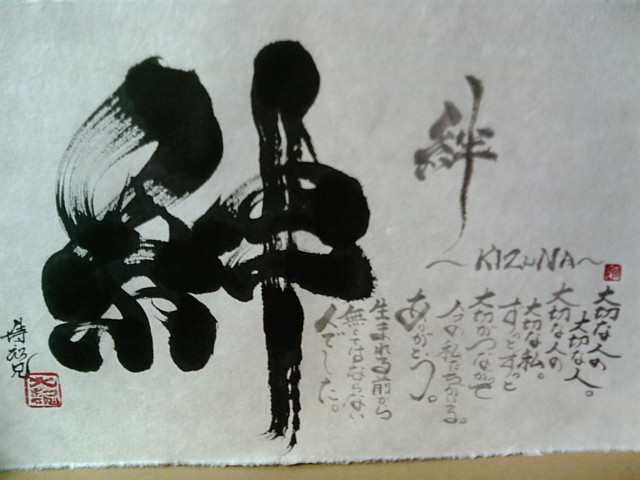 絆
絆
~KIZUNA~
大切な人の
大切な人。
大切な人の
大切な私。
ずっとずっと
大切がつながって
今の私たちがある。
ありがとう。
生まれる前から
無くてはならない
人でした。